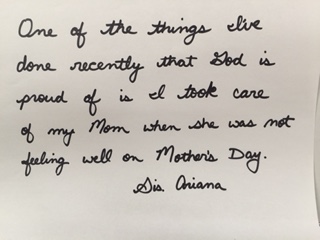 One of the things I've
done recently that God is
proud of is I took care
of my Mom when she was not
feeling well on Mother's Day.
Sis. Ariana